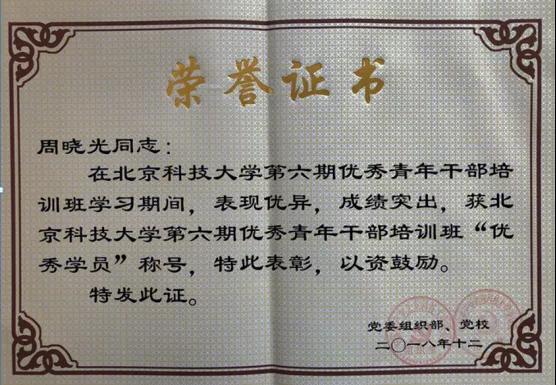 荣誉证书
周晓光同志：
在北京科技大学第六期优秀青年干部培
训班学习期间，表现优异，成绩突出，获北
京科技大学第六期优秀青年干部培训班“优
秀学员”称号，特此表彰，以资鼓励。
特发此证。
党委组织部、党校
二〇一八年十二